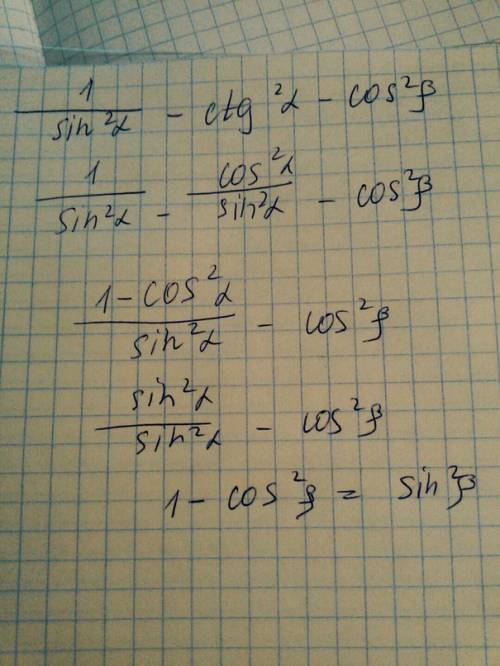 1/sin²α - ctg²α - cos²β
1/sin²α - cos²α/sin²α - cos²β
1-cos²α/sin²α - cos²β
sin²α/sin²α - cos²β
1 - cos²β = sin²β